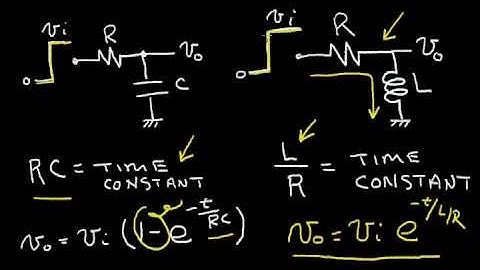 vi R vo
o C
vi R vo
o L
RC = TIME CONSTANT
L/R = TIME CONSTANT
vo = vi (1-e^-t/RC)
vo = vi e^-t/L/R